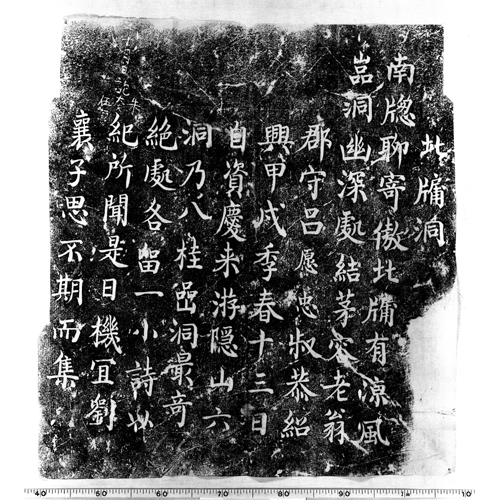 北牖洞
南牕聊寄傲北牖有涼風
嵓洞幽深處結茅容老翁
郡守呂愿忠叔恭紹
興甲戌季春十三日
自資慶来游隐山六
洞乃八桂嵒洞最奇
絶處各留一小詩以
紀所聞是日機宜劉
襄子思不期而集